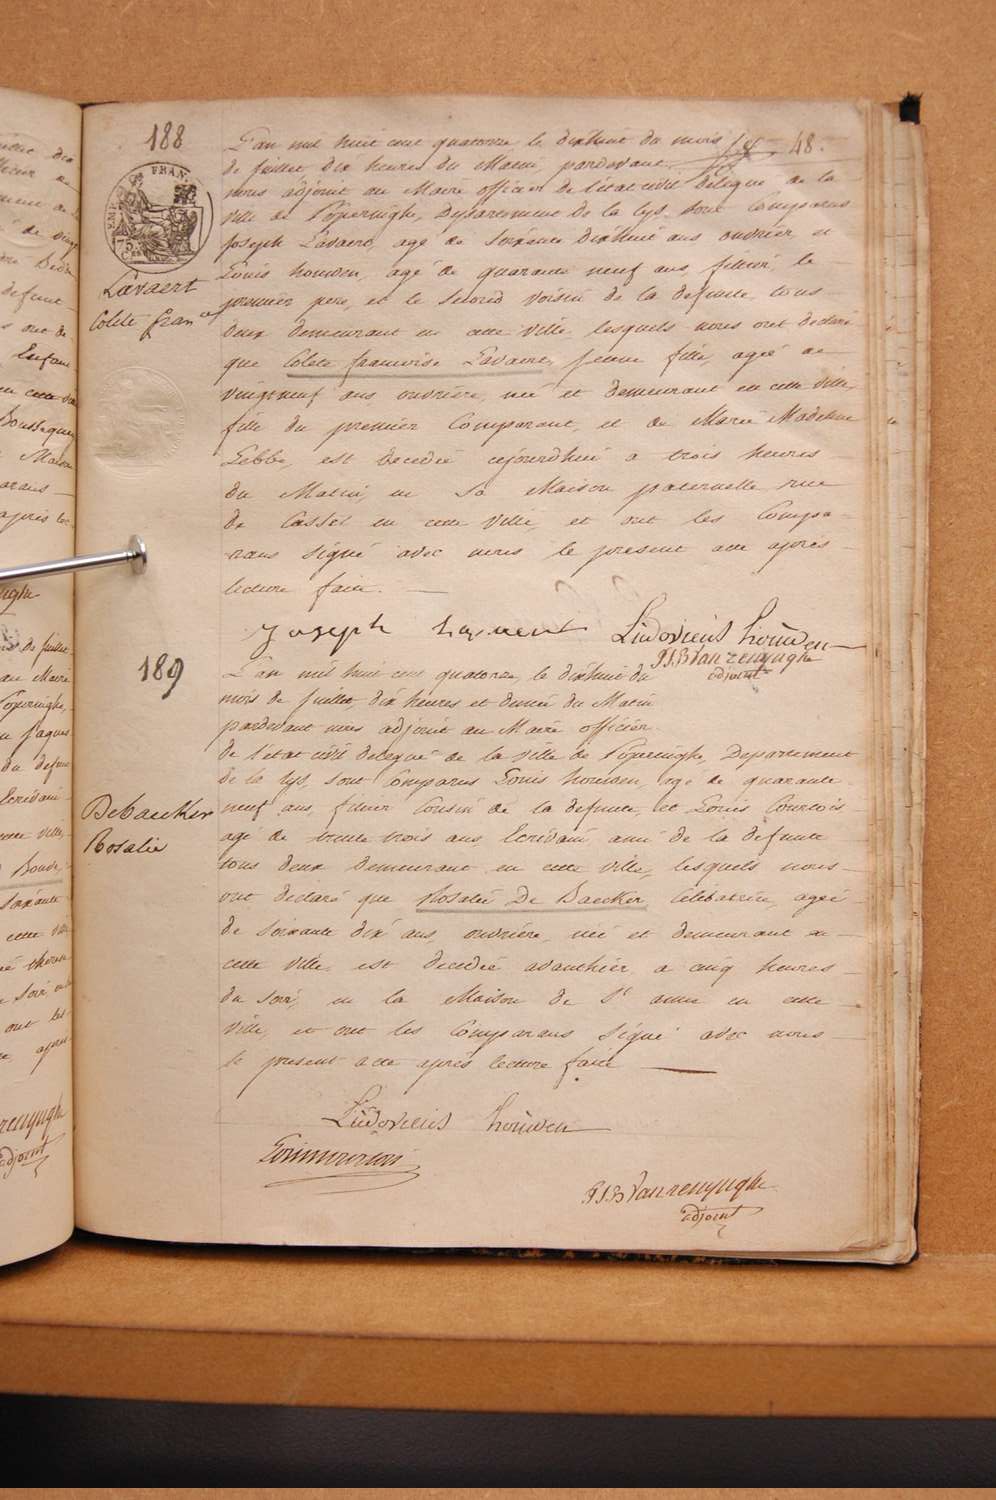 188
48.
EMP FRAN.
75
Lavaert
Colete fran
L'an mil huit cent quatorze le dixhuit du mois
de Juillet dix heures du Matin, pardevant
nous adjoint au Maire officier de l'état civil delegué de la
ville de Poperinghe, Departement de la lys. sont Comparus
Joseph Lavaert, agé de soixante dixhuit ans ouvrier, et
Louis houwen, agé de quarante neuf ans, filtier, le
premier pere, et le second voisin de la defunte, tous
deux demeurant en cette ville, lesquels nous ont declaré
que Colete francoise Lavaert, jeune fille, agée de
vingtneuf ans, ouvrière, née et demeurant en cette ville,
fille du premier Comparant, et de Marie Madeleine
Lebbe, est decedée cejourdhui a trois heures
du Matin, en sa Maison paternelle rue
de Cassel en cette ville, et ont les Compa-
rans signé avec nous le present acte apres
lecture faite. —
Joseph Lavaert Ludovicus houwen
P.J.B Vanrenynghe
adjoint
189
De baecker
Rosalie
L'an mil huit cent quatorze, le dixhuit du
mois de Juillet dix heures et demie du Matin
pardevant nous adjoint au Maire officier
de l'état civil delegué de la ville de Poperinghe, Departement
de la lys, sont Comparus Louis houwen, agé de quarante
neuf ans, filtier Cousin de la defunte, et Louis Courtois
agé de trente trois ans Ecrivain ami de la defunte
tous deux demeurant en cette ville, lesquels nous
ont declaré que Rosalie De Baecker, Célibatrice, agée
de soixante dix ans, ouvrière, née et demeurant en
cette ville, est decedée avanthier a cinq heures
du soir, en la Maison de St anne en cette
ville, et ont les Comparans signé avec nous
le present acte après lecture faite
Ludovicus houwen
P.J.B Vanrenynghe
adjoint